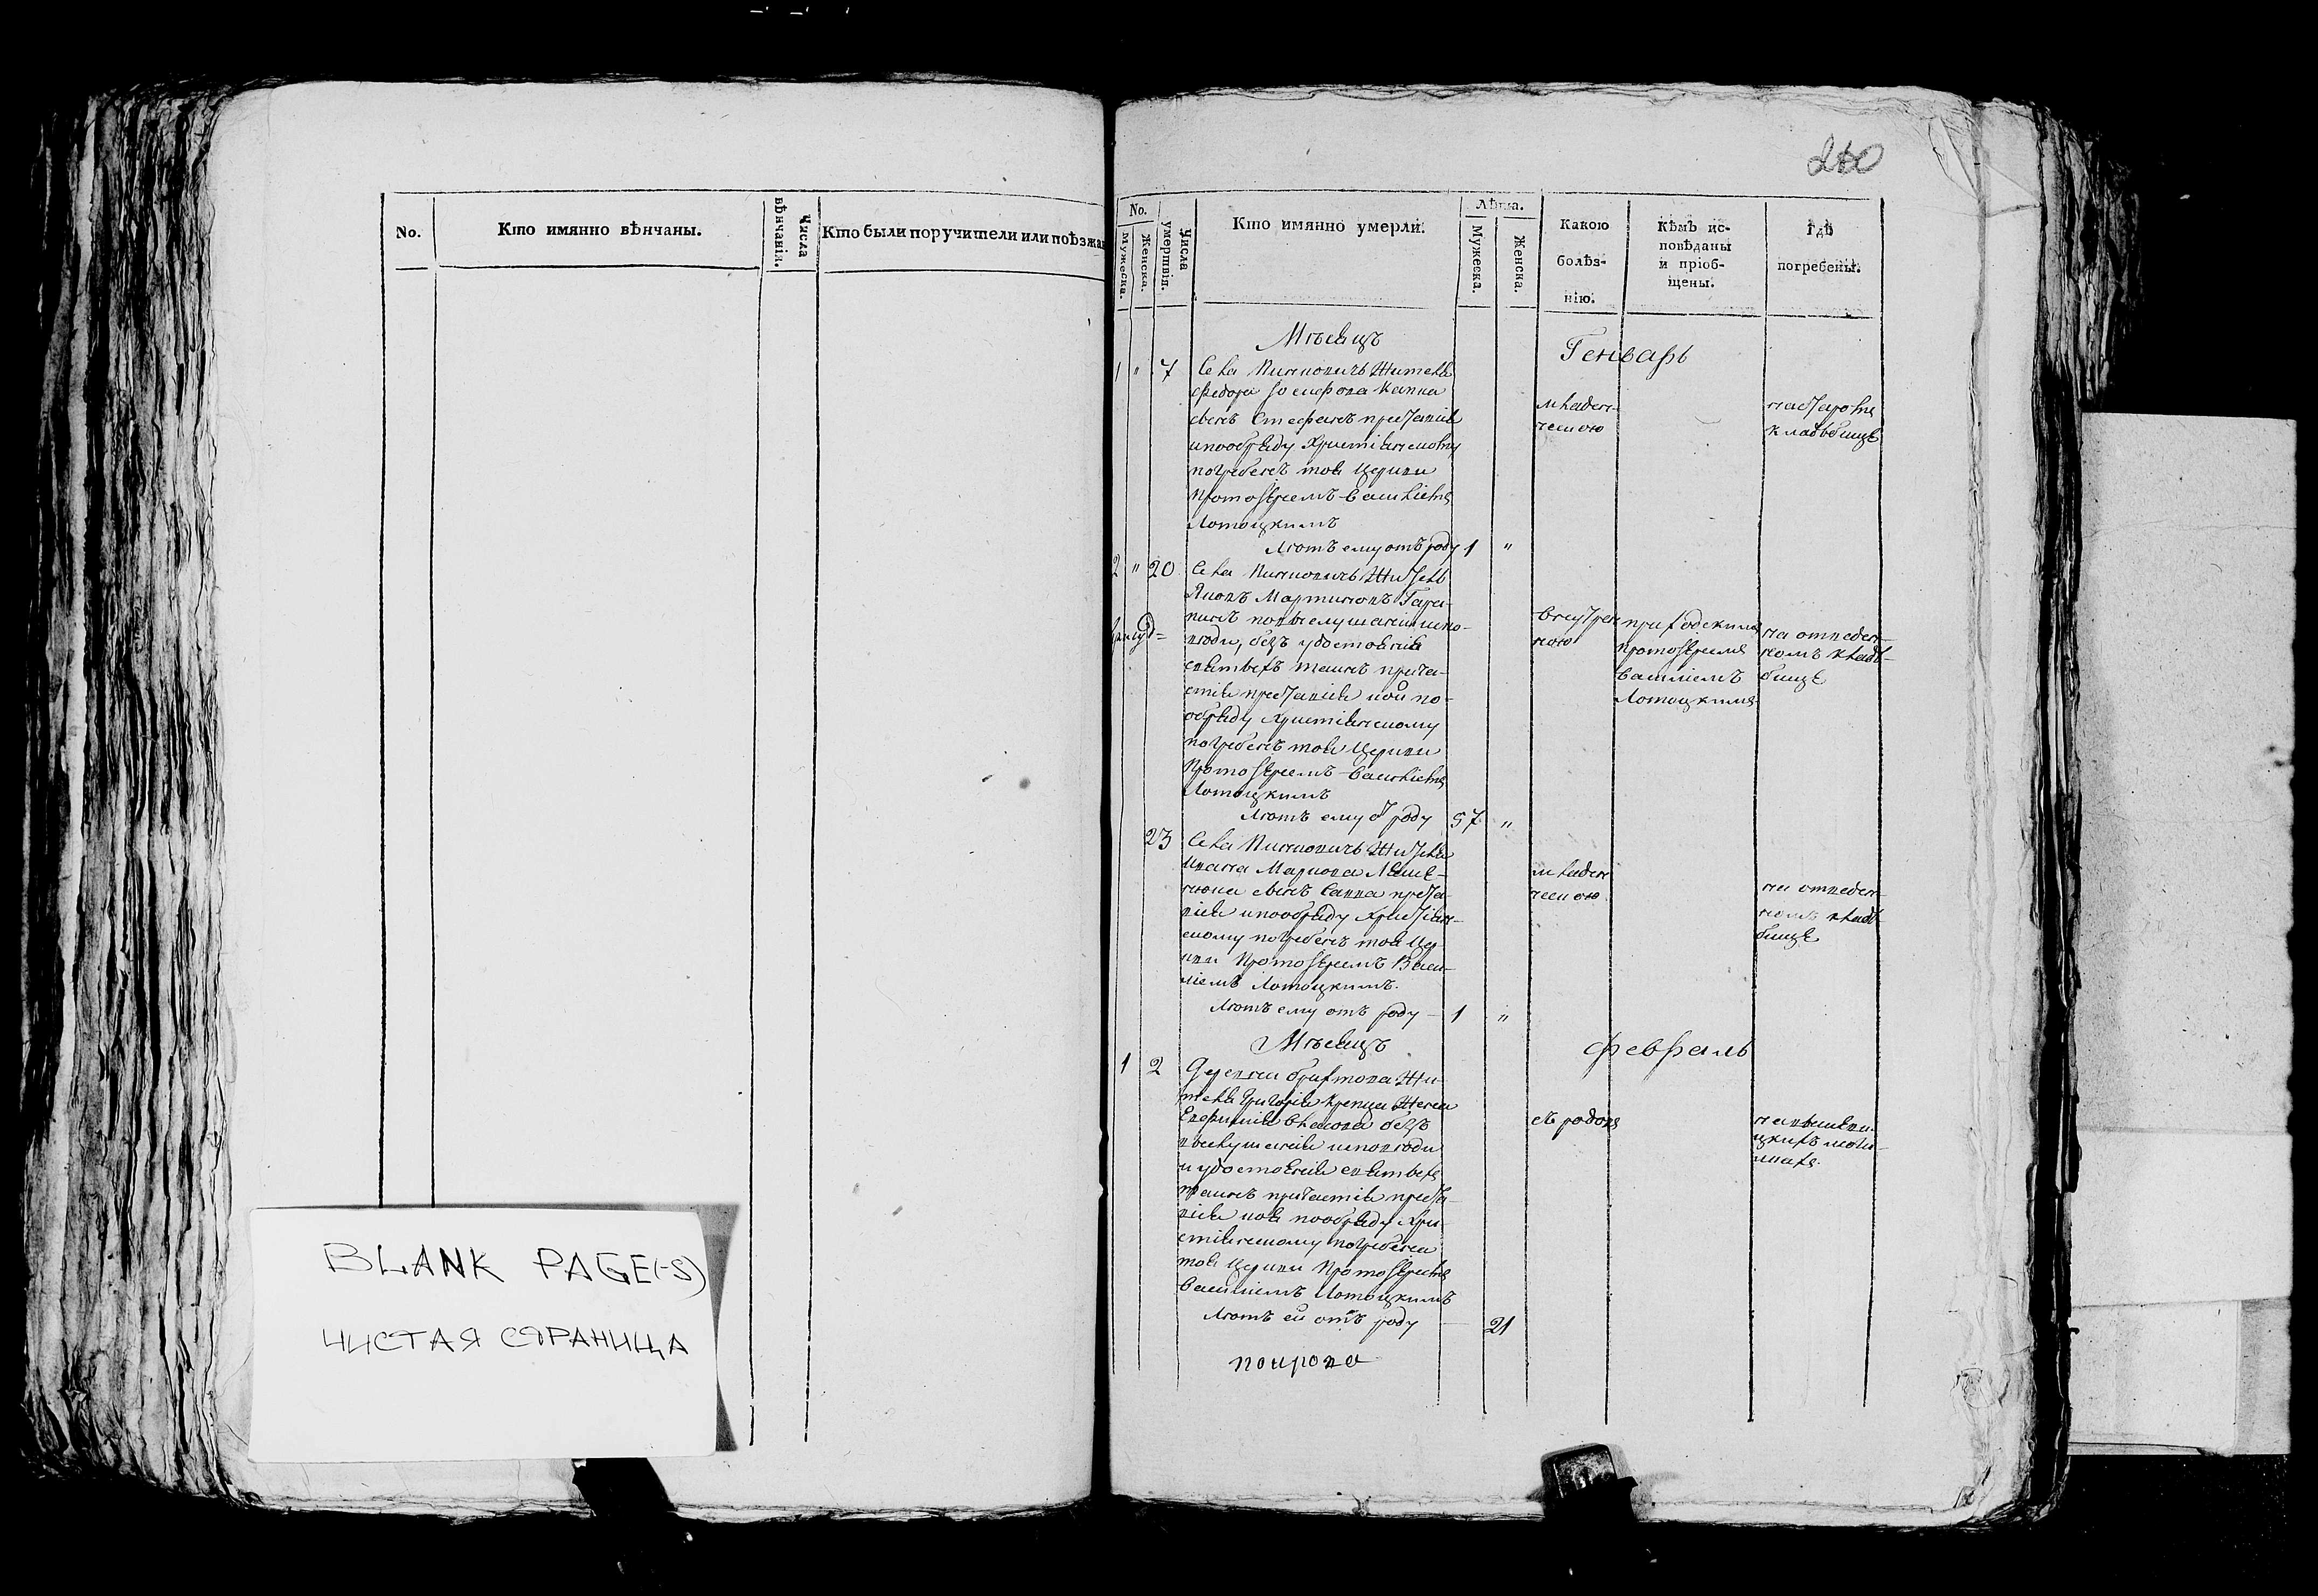 No.
Кто имянно вѣнчаны.
Числа вѣнчанія.
Кто были поручители или поѣзжа
BLANK PAGE(-S)
ЧИСТАЯ СТРАНИЦА
260
No.
Мужеска.
Женска.
Числа умертвія.
Кто имянно умерли.
Лѣта.
Мужеска.
Женска.
Какою
болѣз-
нію.
Кѣмъ ис-
повѣданы
и пріоб-
щены.
Гдѣ
погребены.
Мѣсяцъ
Генварь
1 " 7 Села Пинковичъ Жителя
Федора Іосифова
сынъ Стефанъ преставися
и по обряду христіянскому
погребенъ тоя Церкви
Протоіереемъ Василіемъ
Лотоцкимъ
Лѣтъ ему отъ роду 1 "
младен-
ческою
на старомъ
кладбищѣ
2 " 20 Села Пинковичъ Житель
Яковъ Мартиновъ
по выслушаніи испо-
вѣди, безъ удостоенія
святыхъ таинъ прича-
стія преставися кой по
обряду христіянскому
погребенъ тоя Церкви
Протоіереемъ Василіемъ
Лотоцкимъ
Лѣтъ ему от роду 57 "
внутрен
нею
приходскимъ
протоіереемъ
Василіемъ
Лотоцкимъ
на отведен-
номъ клад-
бищѣ
23 Села Пинковичъ Жителя
Ивана Маркова
сынъ Савва преста-
вися и по обряду христіян-
скому погребенъ тоя Цер-
кви Протоіереемъ Васи-
ліемъ Лотоцкимъ.
Лѣтъ ему отъ роду – 1 "
младен
ческою
на отведен-
номъ клад-
бищѣ
Мѣсяцъ
Февраль
1 2 Деревни Жи-
теля Григорія жена
Евфимія Власова безъ
выслушанія исповѣди
и удостоенія святыхъ
таинъ причастія преста-
вися коя по обряду хри-
стіянскому погребена
тоя Церкви Протоіереемъ
Василіемъ Лотоцкимъ
Лѣтъ ей отъ роду – 21
съ родовъ